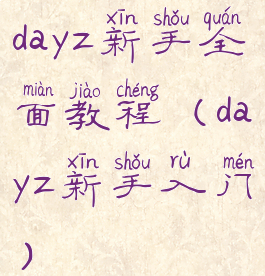 xīn shǒu quán
dayz新手全
miàn jiào chéng
面教程（da
xīn shǒu rù mén
yz新手入门
）